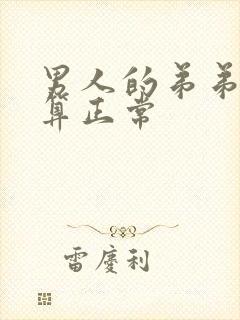 男人的弟弟
算正常
雷慶利